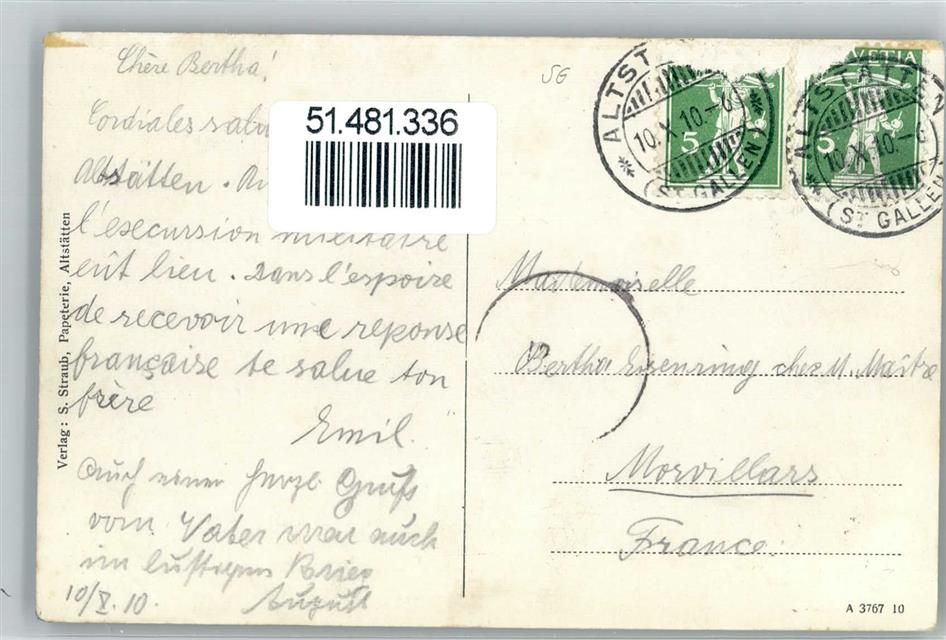 Chère Bertha!
Cordiales salu
51.481.336
Altstätten.
l'execursion militaire
eût lieu. Dans l'espoire
de recevoir une réponse
française te salue ton
frère
Emil.
Auch einen herzl Gruß
vom Vater war auch
im
10/X.10. August
Verlag: S. Straub, Papeterie, Altstätten
SG
ALTSTÄTTEN
10.X.10-6
(ST GALLEN)
5
HELVETIA
ALTSTÄTTEN
10.X.10-6
(ST GALLEN)
5
Mademoiselle
Bertha Eisenring chez M. Maître
Morvillars
France.
A 3767 10